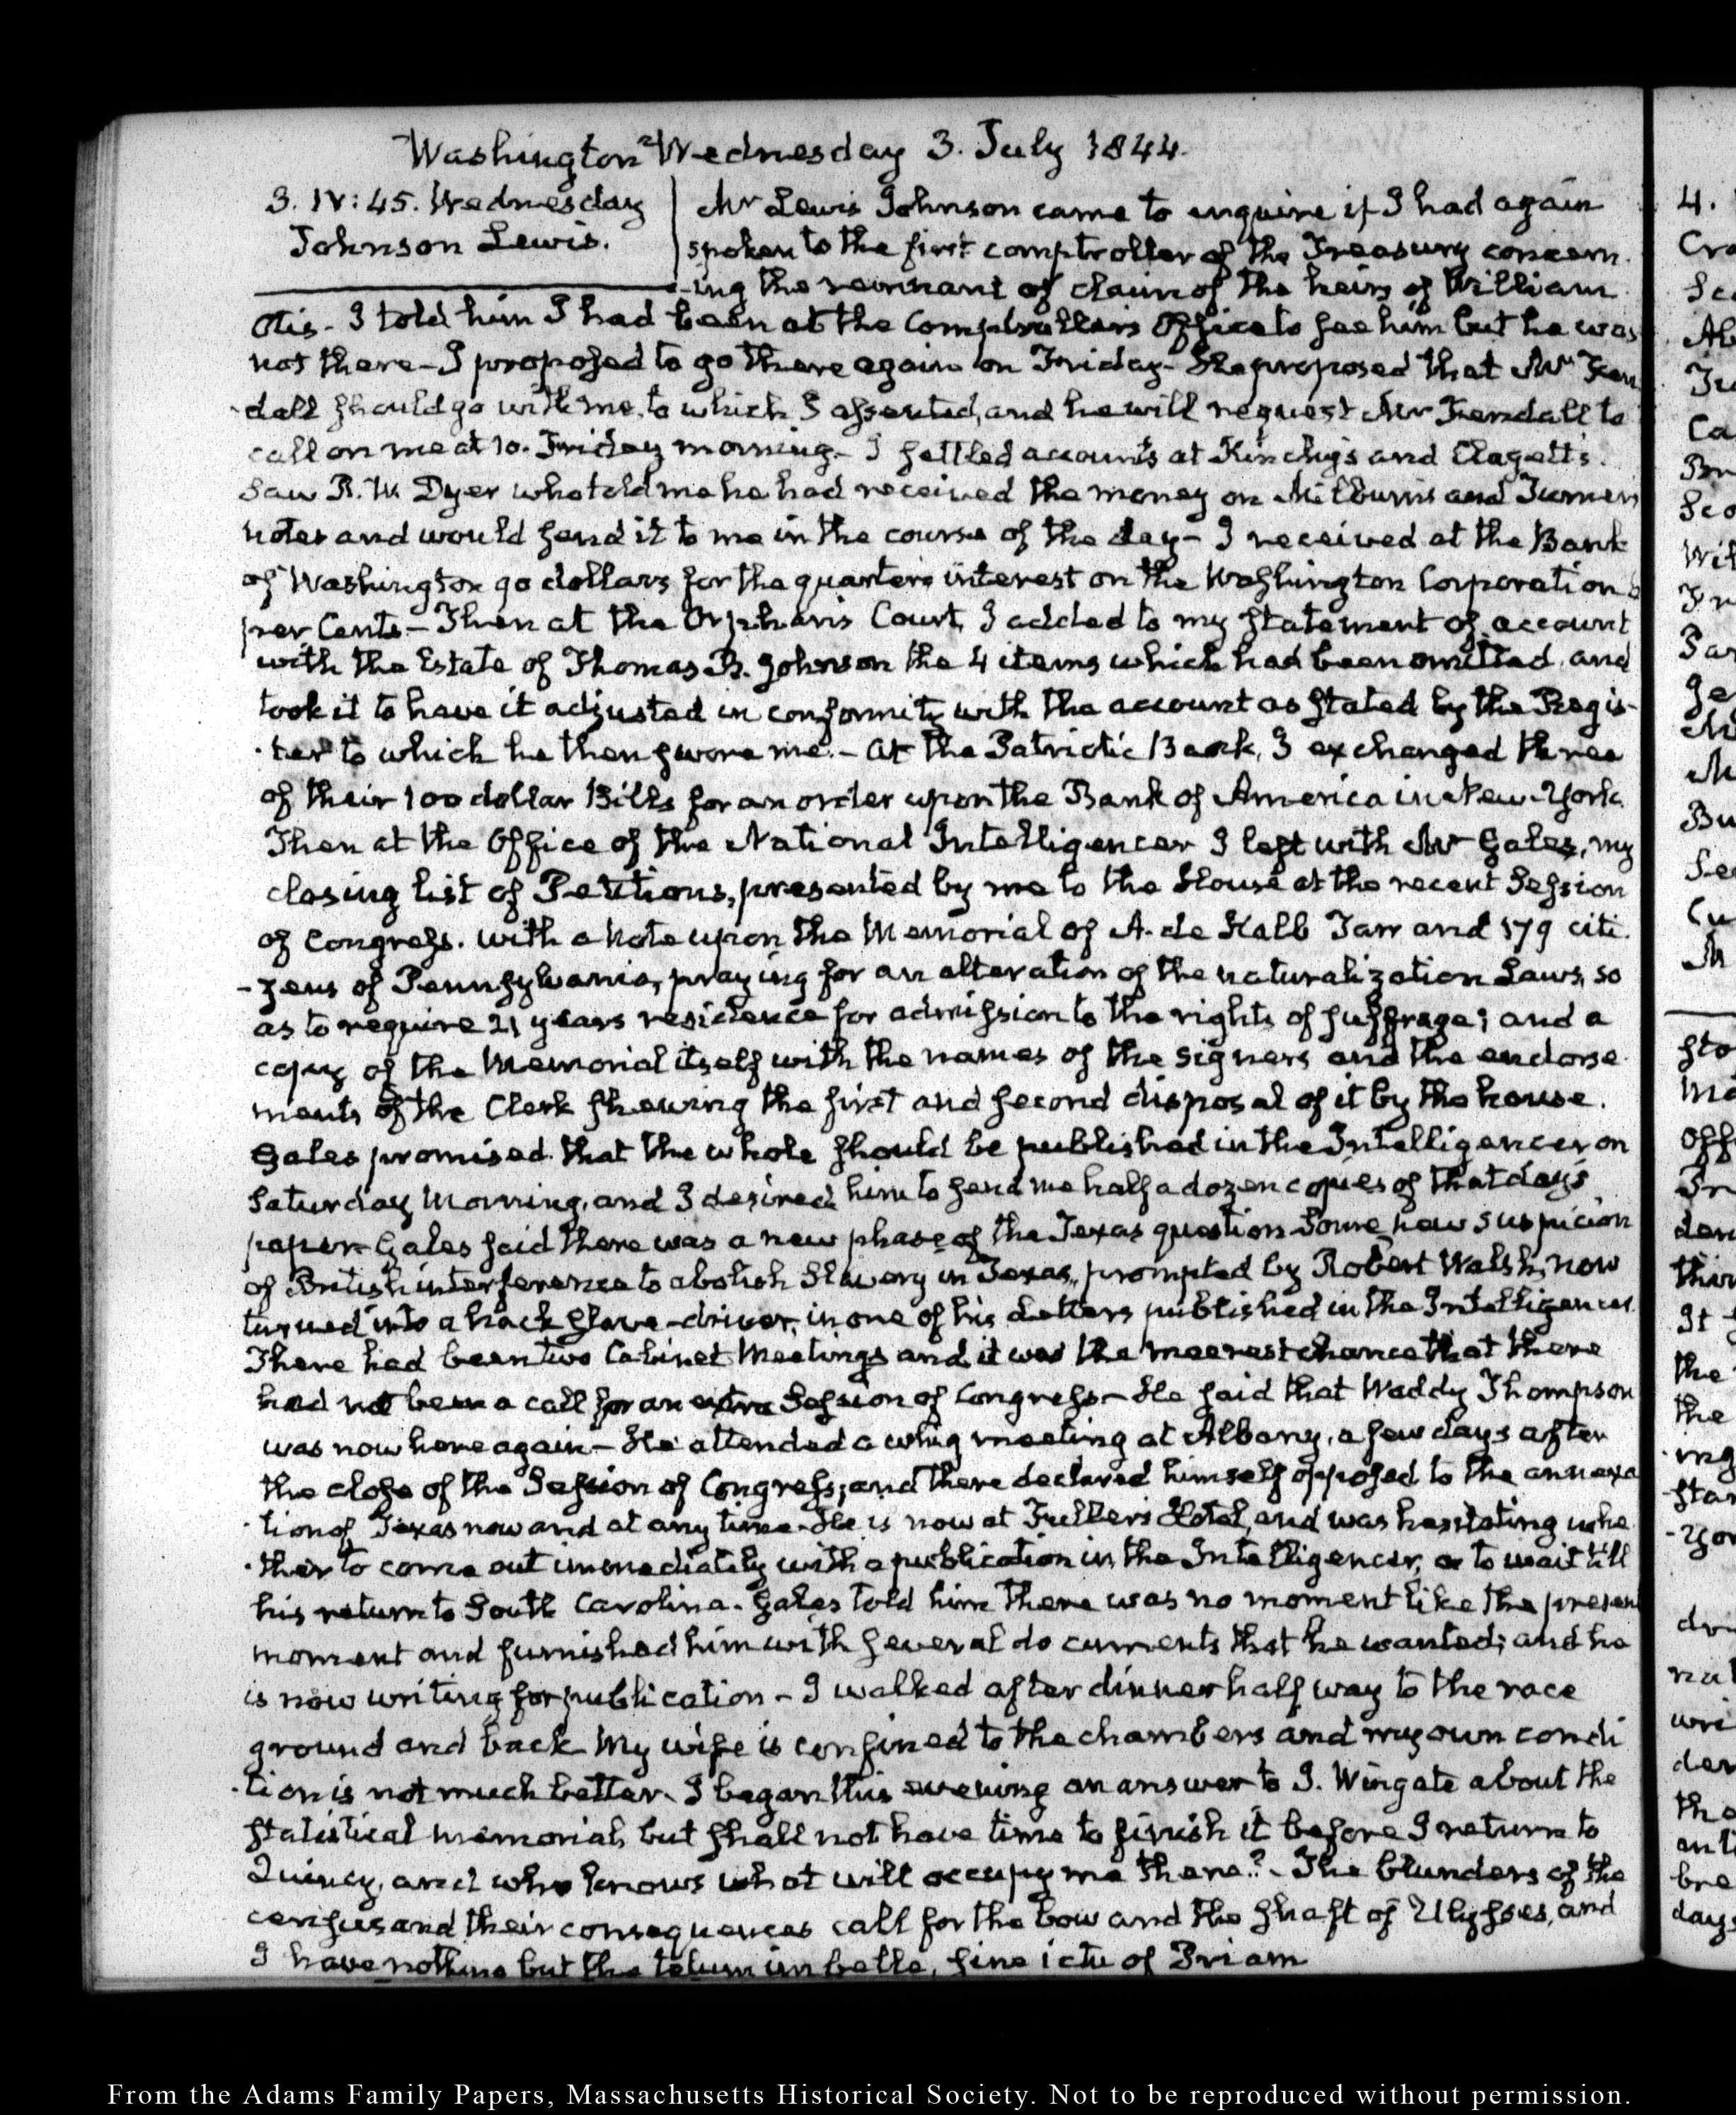 Washington Wednesday 3. July 1844.
3. IV: 45. Wednesday
Johnson Lewis.
Mr Lewis Johnson came to enquire if I had again
spoken to the first comptroller of the Treasury concern-
-ing the remnant of claim of the heirs of William
Otis - I told him I had been at the Comptroller's Office to see him but he was
not there - I proposed to go there again on Friday - He proposed that Mr Ken
-dall should go with me, to which I assented, and he will request Mr Kendall to
call on me at 10. Friday morning - I settled accounts at Kinchy's and Clagett's.
Saw R. W. Dyer who told me he had received the money on Milburn's and Turner's
notes and would send it to me in the course of the day - I received at the Bank
of Washington 90 dollars for the quarter's interest on the Washington Corporation 6
per Cents - Then at the Orphan's Court, I added to my statement of account
with the Estate of Thomas B. Johnson the 4 items which had been omitted, and
took it to have it adjusted in conformity with the account as stated by the Regis-
-ter to which he then swore me. - At the Patriotic Bank, I exchanged three
of their 100 dollar Bills for an order upon the Bank of America in New-York.
Then at the Office of the National Intelligencer I left with Mr Gales, my
closing list of Petitions, presented by me to the House at the recent Session
of Congress. with a Note upon the Memorial of A. de Kalb Tarr and 179 citi-
-zens of Pennsylvania, praying for an alteration of the naturalization Laws, so
as to require 21 years residence for admission to the rights of suffrage; and a
copy of the Memorial itself with the names of the signers and the endorse
ments of the Clerk shewing the first and second disposal of it by the house.
Gales promised that the whole should be published in the Intelligencer on
Saturday Morning, and I desired him to send me half a dozen copies of that day's
paper - Gales said there was a new phase of the Texas question Some new suspicion
of British interference to abolish Slavery in Texas, prompted by Robert Walsh, now
turned into a hack slave-driver, in one of his Letters published in the Intelligencer
There had been two Cabinet Meetings and it was the meerest chance that there
had not been a call for an extra Session of Congress - He said that Waddy Thompson
was now here again - He attended a whig meeting at Albany, a few days after
the close of the Session of Congress; and there declared himself opposed to the annexa
-tion of Texas now and at any time - He is now at Fuller's Hotel, and was hesitating whe
-ther to come out immediately with a publication in the Intelligencer, or to wait till
his return to South Carolina. Gales told him there was no moment like the present
moment and furnished him with several documents that he wanted; and he
is now writing for publication - I walked after dinner half way to the race
ground and back My wife is confined to the chambers and my own condi
-tion is not much better. I began this evening an answer to J. Wingate about the
statistical memorial, but shall not have time to finish it before I return to
Quincy, and who knows what will occupy me there? - The blunders of the
census and their consequences call for the bow and the shaft of Ulysses, and
I have nothing but the telum imbelle, sine ictu of Priam
4.
Cra
off
the
the
From the Adams Family Papers, Massachusetts Historical Society. Not to be reproduced without permission.